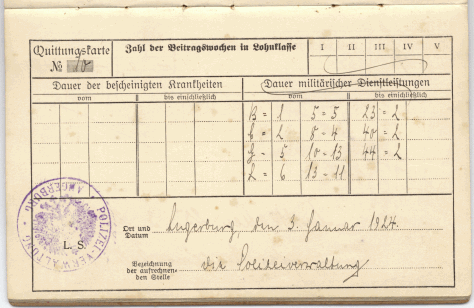 Quittungskarte Zahl der Beitragswochen in Lohnklasse I II III IV V
№ 10
Dauer der bescheinigten Krankheiten Dauer militärischer Dienstleistungen
vom bis einschließlich vom bis einschließlich
B = 1 5 = 5 23 = 2
6 = 2 8 = 4 40 = 2
5 10 = 13 44 = 2
L = 6 13 = 11
POLIZEI-VERWALTUNG ANGERBURG
L. S.
Ort und Datum Angerburg, den 3. Januar 1924.
Bezeichnung der aufrechnenden Stelle die Polizeiverwaltung